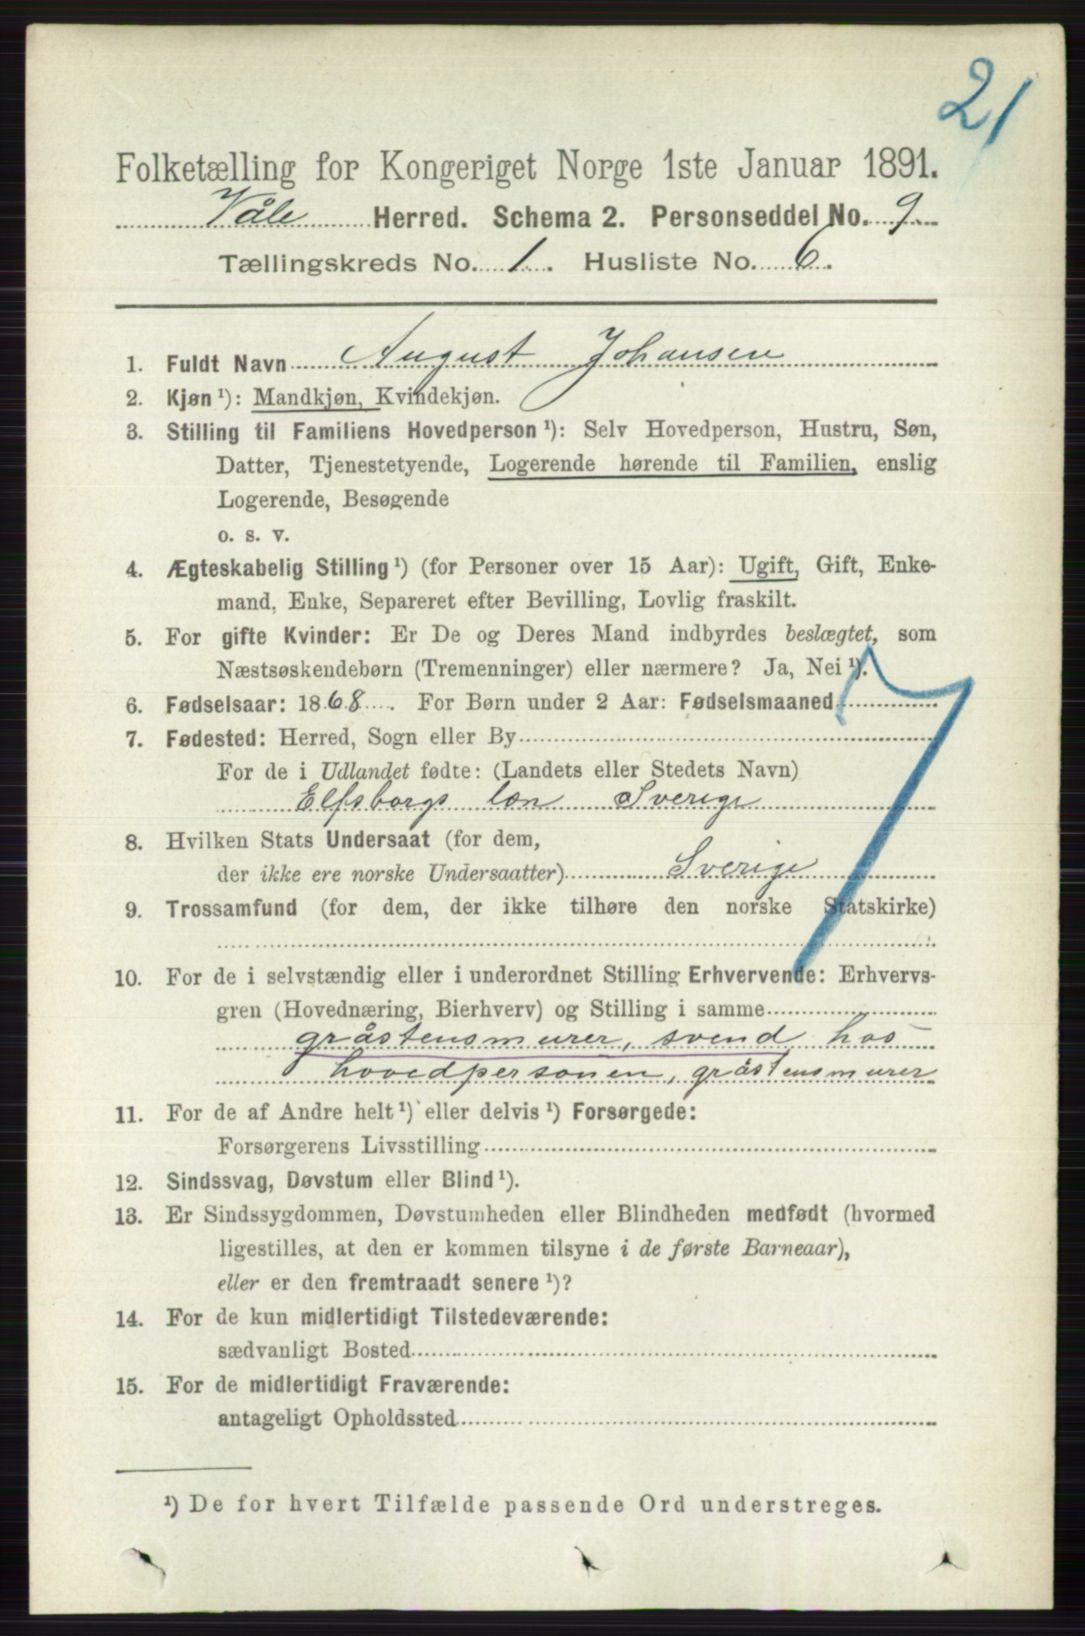 21
Folketælling for Kongeriget Norge 1ste Januar 1891.
Våle Herred. Schema 2. Personseddel No. 9
Tællingskreds No. 1. Husliste No. 6.
1. Fuldt Navn August Johansen
2. Kjøn ¹): Mandkjøn, Kvindekjøn.
3. Stilling til Familiens Hovedperson ¹): Selv Hovedperson, Hustru, Søn,
Datter, Tjenestetyende, Logerende hørende til Familien, enslig
Logerende, Besøgende
o. s. v.
4. Ægteskabelig Stilling ¹) (for Personer over 15 Aar): Ugift, Gift, Enke-
mand, Enke, Separeret efter Bevilling, Lovlig fraskilt.
5. For gifte Kvinder: Er De og Deres Mand indbyrdes beslægtet, som
Næstsøskendebørn (Tremenninger) eller nærmere? Ja, Nei ¹).
6. Fødselsaar: 1868. For Børn under 2 Aar: Fødselsmaaned
7. Fødested: Herred, Sogn eller By
For de i Udlandet fødte: (Landets eller Stedets Navn)
Elfsborgs len Sverige
8. Hvilken Stats Undersaat (for dem,
der ikke ere norske Undersaatter) Sverige
9. Trossamfund (for dem, der ikke tilhøre den norske Statskirke)
10. For de i selvstændig eller i underordnet Stilling Erhvervende: Erhvervs-
gren (Hovednæring, Bierhverv) og Stilling i samme
gråstensmurer, svend hos
hovedpersonen, gråstensmurer
11. For de af Andre helt ¹) eller delvis ¹) Forsørgede:
Forsørgerens Livsstilling
12. Sindssvag, Døvstum eller Blind ¹).
13. Er Sindssygdommen, Døvstumheden eller Blindheden medfødt (hvormed
ligestilles, at den er kommen tilsyne i de første Barneaar),
eller er den fremtraadt senere ¹)?
14. For de kun midlertidigt Tilstedeværende:
sædvanligt Bosted
15. For de midlertidigt Fraværende:
antageligt Opholdssted
¹) De for hvert Tilfælde passende Ord understreges.